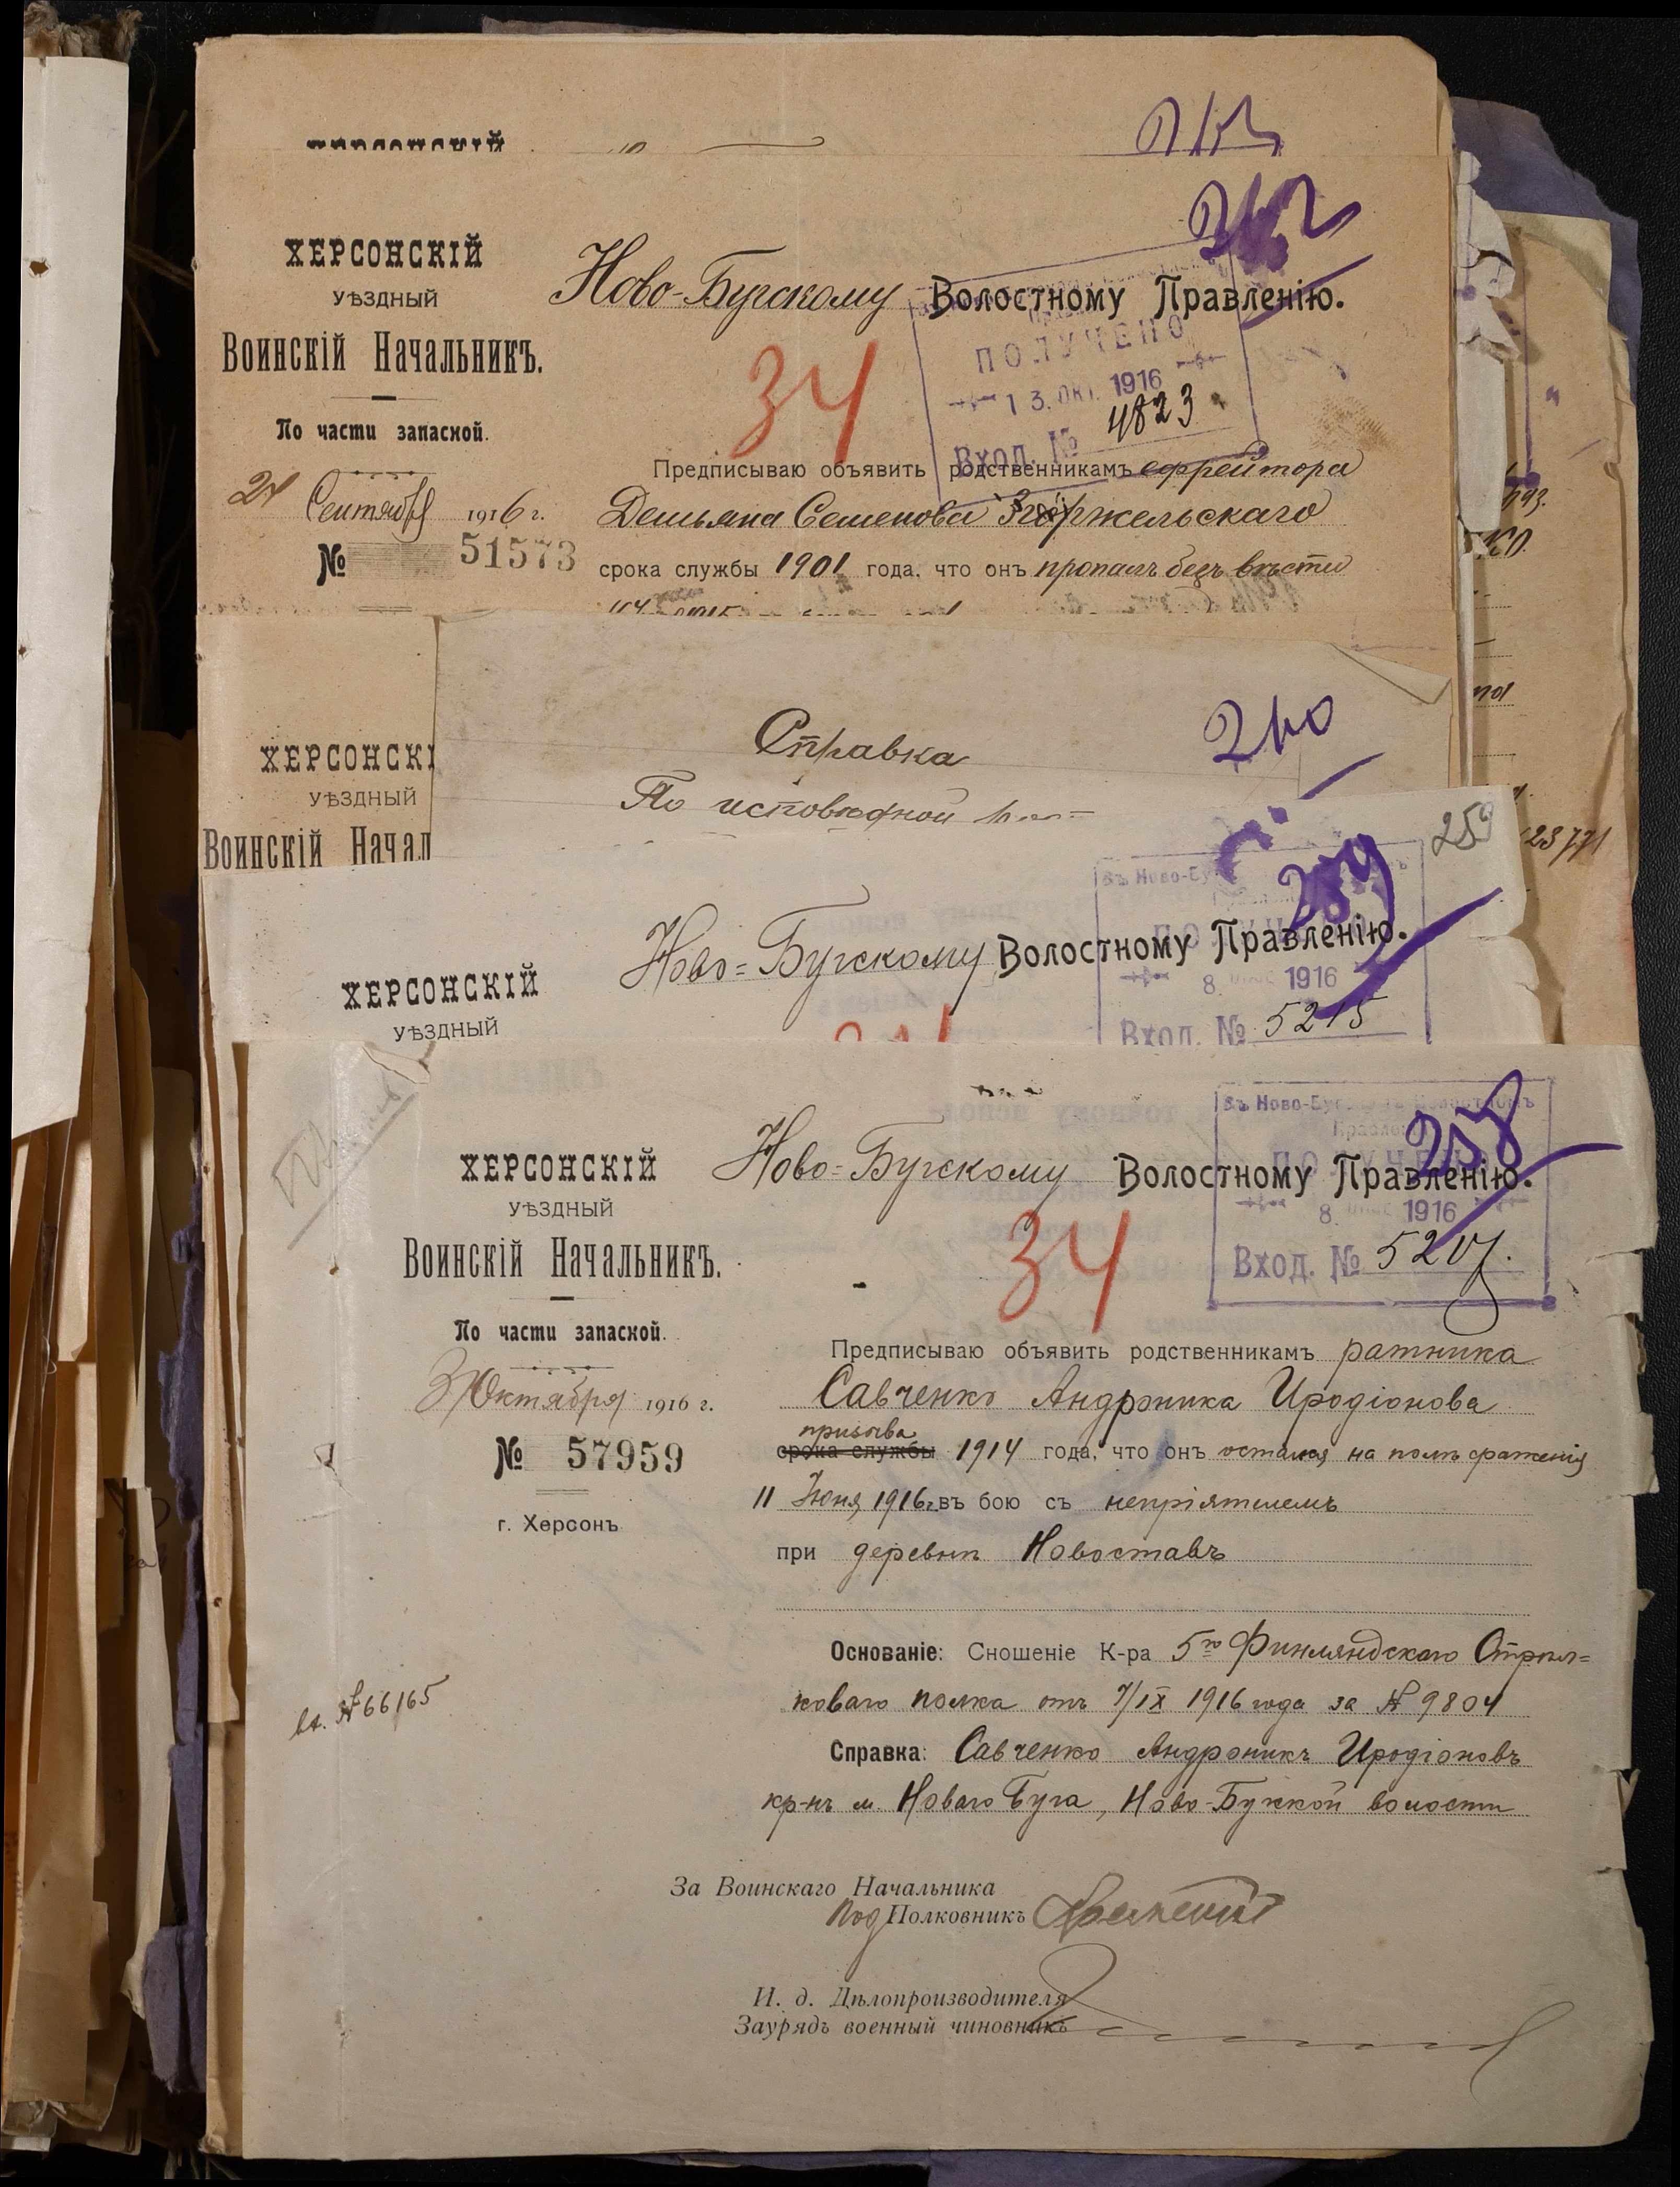 ХЕРСОНСКІЙ
212
ХЕРСОНСКІЙ
УѢЗДНЫЙ
Воинскій Начальникъ.
По части запасной.
Сентября 1916 г.
№ 51573
Ново-Бугскому Волостному Правленію.
ПОЛУЧЕНО
13. ОКТ. 1916
Вход. № 4823
34
Предписываю объявить родственникамъ ефрейтора
Демьяна Семенова
срока службы 1901 года, что онъ пропалъ безъ вѣсти
ХЕРСОНСКІ
УѢЗДНЫЙ
Воинскій Начал
Справка
По исповѣдной
210
259
23771
ХЕРСОНСКІЙ
УѢЗДНЫЙ
Ново=Бугскому Волостному Правленію.
Въ Ново-Бу
209
8. 1916
Вход. № 5215
ХЕРСОНСКІЙ
УѢЗДНЫЙ
Воинскій Начальникъ.
По части запасной.
Октября 1916 г.
№ 57959
г. Херсонъ
вх. № 66165
Ново=Бугскому Волостному Правленію.
Въ Ново-Бугскомъ Волостномъ
Правленіи
ПОЛУЧЕНО
8. 1916
Вход. № 5207.
34
Предписываю объявить родственникамъ ратника
Савченко Андроника Иродіонова
призыва
срока службы 1914 года, что онъ остался на полѣ сраженія
11 Іюня 1916г. въ бою съ непріятелемъ
при деревнѣ Новоставъ
Основаніе: Сношеніе К-ра 5го Финляндскаго Стрѣл=
коваго полка отъ 7/IX 1916 года за № 9804
Справка: Савченко Андроникъ Иродіоновъ
кр-нъ м. Новаго Буга, Ново-Бугской волости
За Воинскаго Начальника
Под Полковникъ
И. д. Дѣлопроизводителя
Заурядъ военный чиновникъ